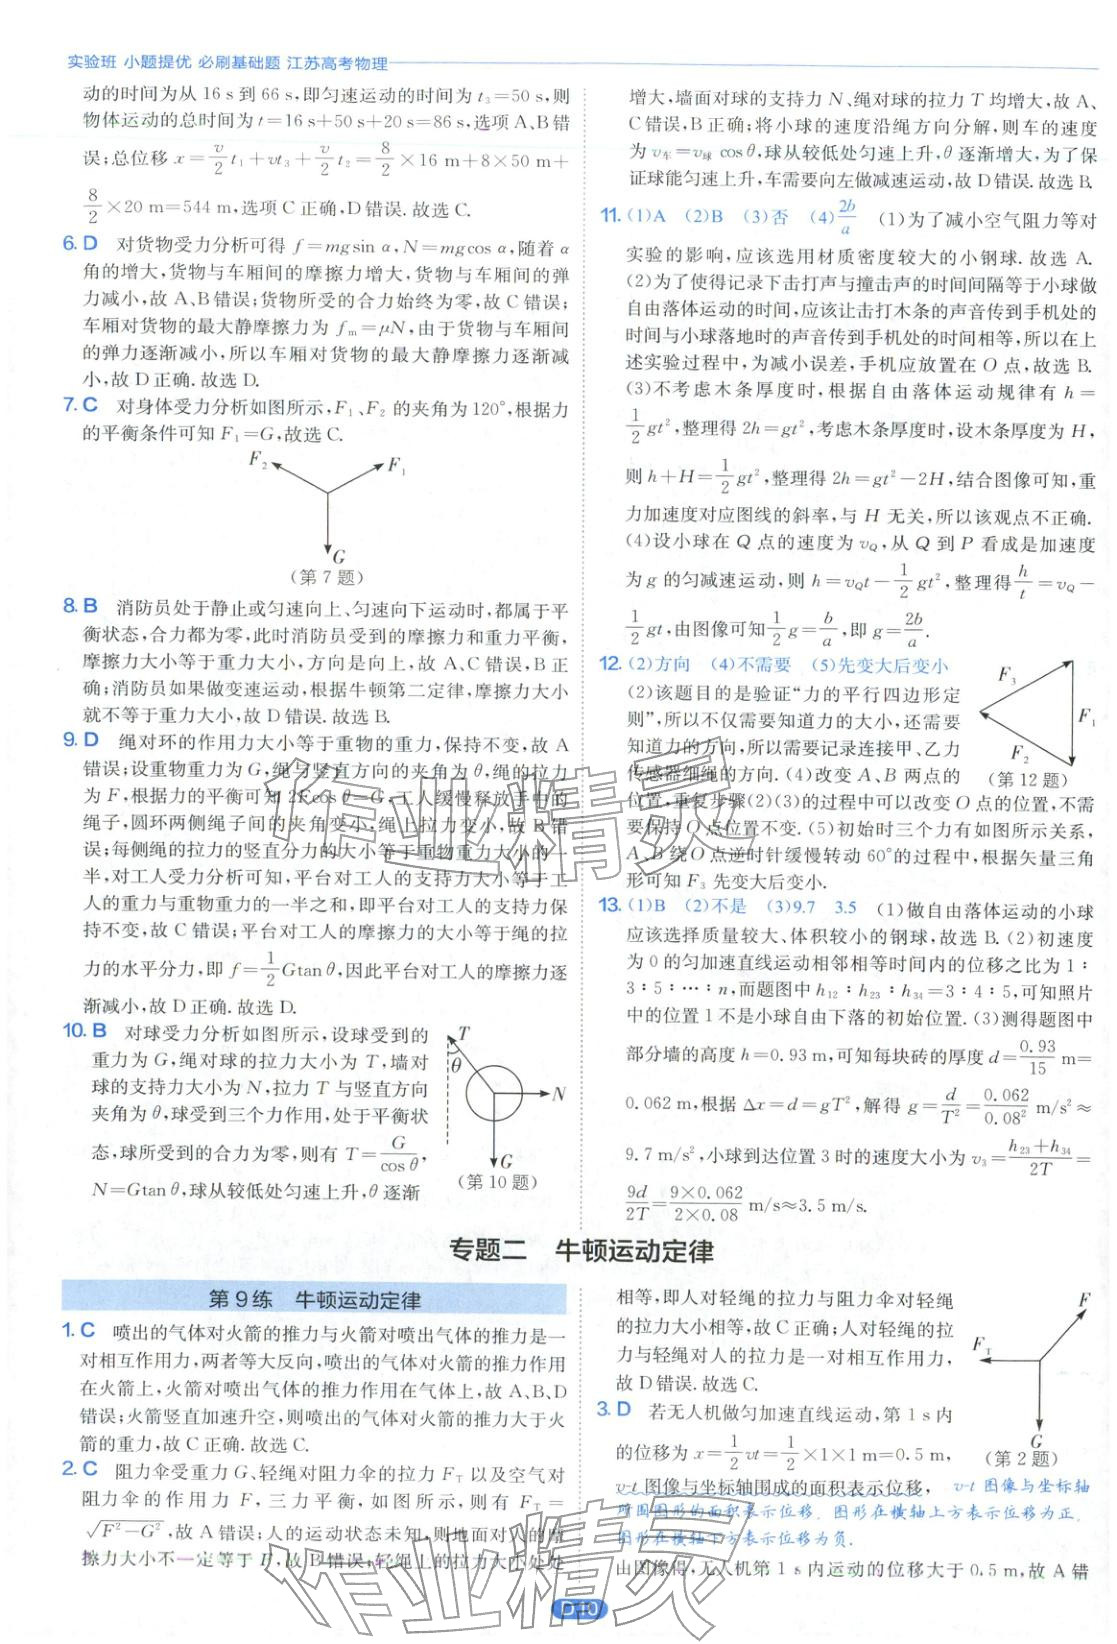 实验班 小题提优 必刷基础题 江苏高考物理
动的时间为从 16 s 到 66 s,即匀速运动的时间为 t₃=50 s,则
物体运动的总时间为 t=16 s+50 s+20 s=86 s,选项 A、B 错
误;总位移 x=v/2 t₁+vt₃+v/2 t₂=8/2×16 m+8×50 m+
8/2×20 m=544 m,选项 C 正确,D 错误. 故选 C.
6. D 对货物受力分析可得 f=mgsin α,N=mgcos α,随着 α
角的增大,货物与车厢间的摩擦力增大,货物与车厢间的弹
力减小,故 A、B 错误;货物所受的合力始终为零,故 C 错误;
车厢对货物的最大静摩擦力为 fₘ=μN,由于货物与车厢间
的弹力逐渐减小,所以车厢对货物的最大静摩擦力逐渐减
小,故 D 正确. 故选 D.
7. C 对身体受力分析如图所示,F₁、F₂ 的夹角为 120°,根据力
的平衡条件可知 F₁=G,故选 C.
F₂
F₁
G
(第 7 题)
8. B 消防员处于静止或匀速向上、匀速向下运动时,都属于平
衡状态,合力都为零,此时消防员受到的摩擦力和重力平衡,
摩擦力大小等于重力大小,方向是向上. 故 A、C 错误,B 正
确;消防员如果做变速运动,根据牛顿第二定律,摩擦力大小
就不等于重力大小,故 D 错误. 故选 B.
9. D 绳对环的作用力大小等于重物的重力,保持不变,故 A
错误;设重物重力为 G,绳与竖直方向的夹角为 θ,绳的拉力
为 F,根据力的平衡可知 2Fcos θ=G,工人缓慢释放手中的
绳子,圆环两侧绳子间的夹角变小,绳上拉力变小,故 B 错
误;每侧绳的拉力的竖直分力的大小等于重物重力大小的一
半,对工人受力分析可知,平台对工人的支持力大小等于工
人的重力与重物重力的一半之和,即平台对工人的支持力保
持不变,故 C 错误;平台对工人的摩擦力的大小等于绳的拉
力的水平分力,即 f=1/2 Gtan θ,因此平台对工人的摩擦力逐
渐减小,故 D 正确. 故选 D.
10. B 对球受力分析如图所示,设球受到的
重力为 G,绳对球的拉力大小为 T,墙对
球的支持力大小为 N,拉力 T 与竖直方向
夹角为 θ,球受到三个力作用,处于平衡状
态,球所受到的合力为零,则有 T=G/cos θ,
N=Gtan θ,球从较低处匀速上升,θ 逐渐
T
θ
N
G
(第 10 题)
增大,墙面对球的支持力 N、绳对球的拉力 T 均增大,故 A、
C 错误,B 正确;将小球的速度沿绳方向分解,则车的速度
为 v车=v球 cos θ,球从较低处匀速上升,θ 逐渐增大,为了保
证球能匀速上升,车需要向左做减速运动,故 D 错误. 故选 B.
11. (1)A (2)B (3)否 (4)2b/a (1)为了减小空气阻力等对
实验的影响,应该选用材质密度较大的小钢球. 故选 A.
(2)为了使得记录下击打声与撞击声的时间间隔等于小球做
自由落体运动的时间,应该让击打木条的声音传到手机处的
时间与小球落地时的声音传到手机处的时间相等,所以在上
述实验过程中,为减小误差,手机应放置在 O 点,故选 B.
(3)不考虑木条厚度时,根据自由落体运动规律有 h=
1/2 gt²,整理得 2h=gt²,考虑木条厚度时,设木条厚度为 H,
则 h+H=1/2 gt²,整理得 2h=gt²-2H,结合图像可知,重
力加速度对应图线的斜率,与 H 无关,所以该观点不正确.
(4)设小球在 Q 点的速度为 v_Q,从 Q 到 P 看成是加速度
为 g 的匀减速运动,则 h=v_Q t-1/2 gt²,整理得 h/t=v_Q-
1/2 gt,由图像可知 1/2 g=b/a,即 g=2b/a.
12. (2)方向 (4)不需要 (5)先变大后变小
(2)该题目的是验证“力的平行四边形定
则”,所以不仅需要知道力的大小,还需要
知道力的方向,所以需要记录连接甲、乙力
传感器细绳的方向. (4)改变 A、B 两点的
位置,重复步骤(2)(3)的过程中可以改变 O 点的位置,不需
要保持 O 点位置不变. (5)初始时三个力有如图所示关系,
A、B 绕 O 点逆时针缓慢转动 60°的过程中,根据矢量三角
形可知 F₃ 先变大后变小.
F₃
F₁
F₂
(第 12 题)
13. (1)B (2)不是 (3)9.7 3.5 (1)做自由落体运动的小球
应该选择质量较大、体积较小的钢球,故选 B. (2)初速度
为 0 的匀加速直线运动相邻相等时间内的位移之比为 1∶
3∶5∶…∶n,而题图中 h₁₂∶h₂₃∶h₃₄=3∶4∶5,可知照片
中的位置 1 不是小球自由下落的初始位置. (3)测得题图中
部分墙的高度 h=0.93 m,可知每块砖的厚度 d=0.93/15 m=
0.062 m,根据 Δx=d=gT²,解得 g=d/T²=0.062/0.08² m/s²≈
9.7 m/s²,小球到达位置 3 时的速度大小为 v₃=(h₂₃+h₃₄)/2T=
9d/2T=(9×0.062)/(2×0.08) m/s≈3.5 m/s.
专题二 牛顿运动定律
第 9 练 牛顿运动定律
1. C 喷出的气体对火箭的推力与火箭对喷出气体的推力是一
对相互作用力,两者等大反向,喷出的气体对火箭的推力作用
在火箭上,火箭对喷出气体的推力作用在气体上,故 A、B、D
错误;火箭竖直加速升空,则喷出的气体对火箭的推力大于火
箭的重力,故 C 正确. 故选 C.
2. C 阻力伞受重力 G、轻绳对阻力伞的拉力 F_T 以及空气对
阻力伞的作用力 F,三力平衡,如图所示,则有 F_T=
√(F²-G²),故 A 错误;人的运动状态未知,则地面对人的摩
擦力大小不一定等于 F_T,故 B 错误;轻绳上的拉力大小处处
相等,即人对轻绳的拉力与阻力伞对轻绳
的拉力大小相等,故 C 正确;人对轻绳的拉
力与轻绳对人的拉力是一对相互作用力,
故 D 错误. 故选 C.
F
F_T
G
(第 2 题)
3. D 若无人机做匀加速直线运动,第 1 s 内
的位移为 x=1/2 vt=1/2×1×1 m=0.5 m,
v-t 图像与坐标轴围成的面积表示位移, v-t 图像与坐标轴
所围图形的面积表示位移,图形在横轴上方表示位移为正,
图形在横轴下方表示位移为负.
由图像得,无人机第 1 s 内运动的位移大于 0.5 m,故 A 错
D10
作业精灵
作业精灵